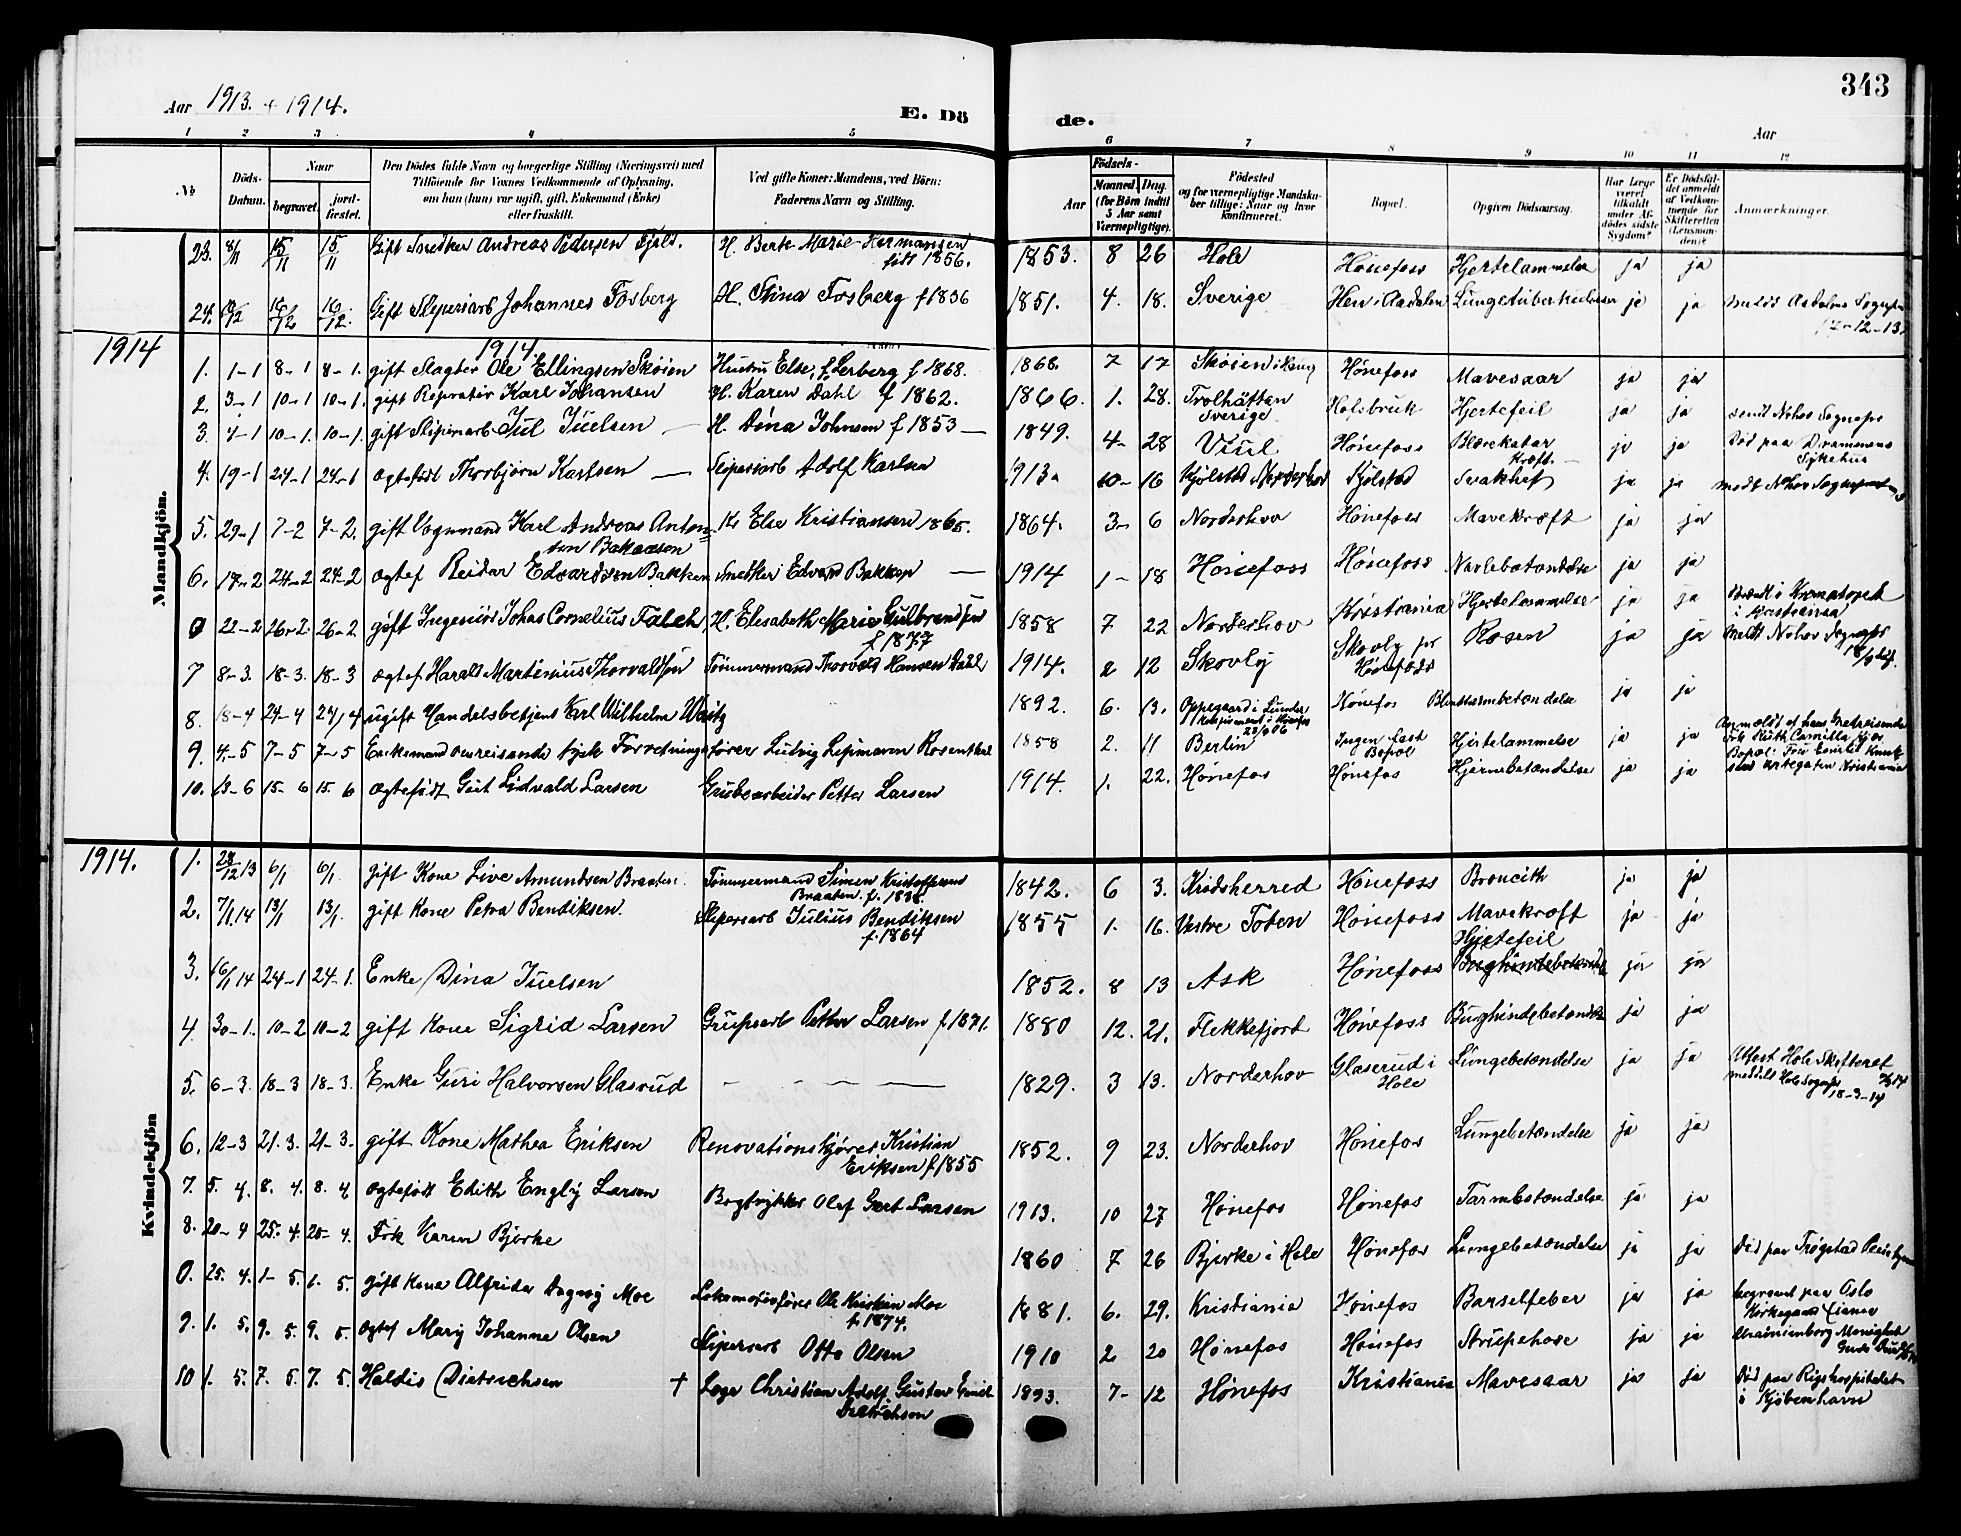 343
Aar 1913. + 1914.
E. Dö de.
Aar
1 2 3 4 5 6 7 8 9 10 11 12
No
Döds-Datum.
Naar
begravet.
jordfæstet.
Den Dödes fulde Navn og borgerlige Stilling (Næringsvei) med
Tilföiende for Voxnes Vedkommende af Oplysning,
om han (hun) var ugift, gift, Enkemand (Enke)
eller fraskilt.
Ved gifte Koner: Mandens, ved Börn:
Faderens Navn og Stilling.
Födsels-
Aar
Maaned. Dag.
(for Börn indtil
5 Aar samt
Værnepligtige).
Födested
og for værnepligtige Mandskaber tillige: Naar og hvor
Konfirmeret.
Bopæl.
Opgiven Dödsaarsag.
Har Læge været tilkaldt under Afdödes sidste Sygdom?
Er Dödsfaldet anmeldt af Vedkommende for Skifteretten (Lensmanden)?
Anmærkninger.
Mandkjön.
23. 8/11 15/11 15/11 Gift Snedker Andreas Pedersen Fjeld. H. Berte Marie Hermansen født 1856. 1853. 8 26 Hole Hønefoss Hjertelammelse ja ja
24. 12 12 12. Gift Sliperiarb Johannes Fosberg H. Stina Fosberg f 1836 1851. 4. 18. Sverige Hen i Aadalen Lungetuberkulose ja ja Aadalens Sognepr 17-12-13.
1914
1914.
1. 1-1 8-1 8-1. gift Slagter Ole Ellingsen Skøien Hustru Else, f. Lerberg f 1868. 1868. 7 17 Skøien i Hønefoss Mavesaar ja ja
2. 3-1 10-1 10-1. gift Reparatør Karl Johansen H. Karen Dahl f 1862. 1866. 1. 28. Trolhättan Sverige Hofsbruk Hjertefeil ja ja Sognepr
3. 4-1 10-1. 10-1. gift Sliperiarb Jul Juelsen H. Dina Johnsen f 1853 1849. 4 28 Viul Hønefoss Blærekatar Kræft. ja ja Død paa Drammens Sykehus
4. 19-1 24-1 24-1 ægtefødt Thorbjørn Karlsen Sliperiarb Adolf Karlsen 1913. 10 16 Kjølstad Norderhov Kjølstad Svakhet ja ja
5. 29-1 7-2 7-2. gift Vognmand Karl Andreas Anton= H. Else Kristiansen 1865. 1864. 3 6 Norderhov Hønefoss Mavekræft ja ja
6. 17-2 24-2 24-2 ægtef Reidar Edvardsen Bakken Snedker Edvard Bakken 1914 1 18 Hønefoss Hønefoss Navlebetændelse ja ja
0 22-2 26-2. 26-2 gift Ingeniør Johas Cornelius Falch H. Elisabeth Marie Gulbrandsen f 1877 1858 7 22 Norderhov Kristiania Hjertelammelse ja ja Brændt i Krematoriet i Kristiania
7 8-3. 18-3. 18-3 ægtef. Harald Martinius Thorvaldsen Tømmermand Thorvald Hansen Dahl 1914. 2 12 Skovly Skovly pr Hønefoss Rosen ja ja
8. 18-4 24-4 24/4 ugift Handelsbetjent Karl Wilhelm 1892. 6. 13. Oppegaard i Lunder Hønefos Blindtarmbetændelse ja ja
9. 4-5 7-5 7-5 Enkemand omreisende tysk Forretningsfører Ludvig Rosenthal 1858 2. 11 Berlin Ingen fast Bopæl Hjertelammelse ja ja Kristiania
10. 13-6 15-6 15-6 ægtefødt Gut Lidvald Larsen Grubearbeider Petter Larsen 1914. 1. 22. Hønefos Hønefos Hjernebetændelse ja ja
1914.
Kvindekjön
1. 28/12 13 6/1 6/1. gift Kone Live Amundsen Braaten. Tømmermand Simen Kristoffersen Braaten. f. 1838. 1842. 6 3. Krødsherred Hønefoss Broncith ja ja
2. 7/1.14 13/1 13/1. gift Kone Petra Bendiksen. Sliperiarb Julius Bendiksen f. 1864 1855 1. 16. Vestre Toten Hønefoss Mavekræft Hjertefeil ja ja
3. 16/1 14 24-1 24-1. Enke Dina Juelsen 1852. 8 13 Ask Hønefoss ja ja
4. 30-1. 10-2 10-2 gift Kone Sigrid Larsen Petter Larsen f 1871. 1880 12. 21. Flekkefjord Hønefoss Bughindebetændelse ja ja
5. 6-3. 18-3 18-3. Enke Guri Halvorsen Glasrud 1829. 3 13. Norderhov Glaserud i Hole Lungebetændelse ja ja Attest Hole Skifteret meddelt Hole Sognepr 18-3-14
6. 12-3 21.3. 21-3. gift Kone Mathea Eriksen Renovationskjører Kristian Eriksen f 1855 1852. 9 23. Norderhov Hønefos Lungebetændelse ja ja
7. 5. 4. 8. 4. 8. 4 ægtefødt Edith Engly Larsen Bogtrykker Olaf Gert Larsen 1913. 10 27 Hønefos Hønefos Tarmbetændelse ja ja
8. 20-4 25. 4. 25-4. Frk Karen Bjørke 1860 7 26 Bjørke i Hole Hønefos Lungebetændelse ja ja Død paa Trøgstad
0. 25. 4. 1-5. 1. 5. gift Kone Alfrida Dagny Moe Lokomotivfører Ole Kristian Moe f. 1874. 1881. 6. 29. Kristiania Hønefos Barselfeber ja ja begravet paa Oslo Kirkegaard
9. 1. 5. 9. 5. 9. 5. ægtef Mary Johanne Olsen Sliperiarb Otto Olsen 1910 2 20 Hønefos Hønefos Strupehoste ja ja
10 1. 5. 7. 5. 7. 5. Haldis Dietrichsen † Læge Christian Adolf Gustav Dietrichson 1893. 7- 12 Hønefos Kristiania Mavesaar ja ja Død paa Rigshospitalet i Kjøbenhavn